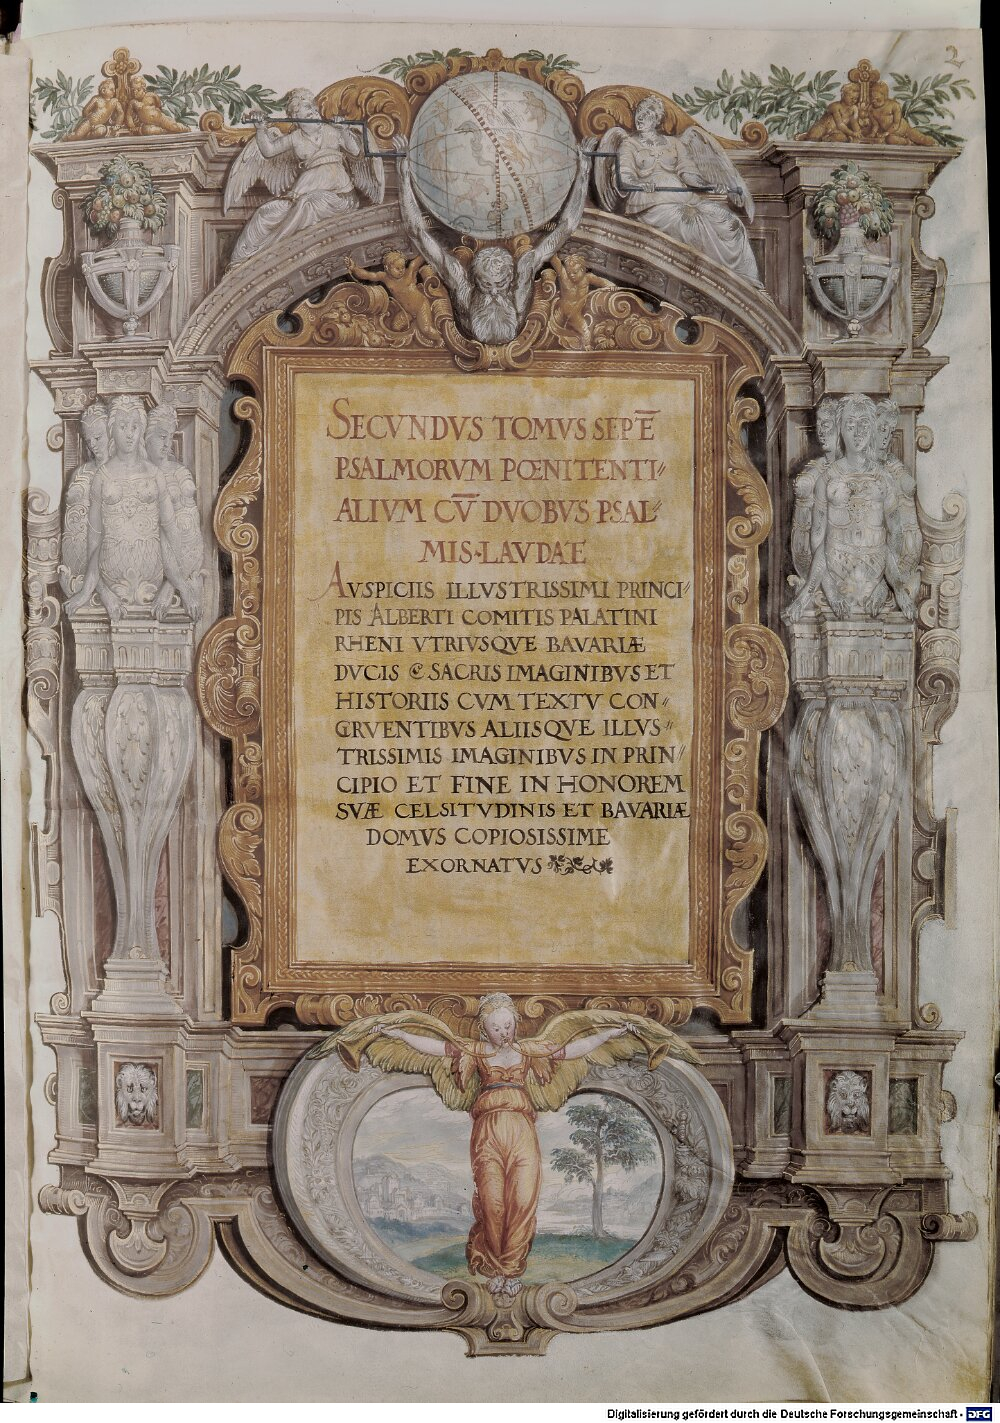 2
SECVNDVS TOMVS SEPTE̅
PSALMORVM PŒNITENTI⸗
ALIVM CV̅ DVOBVS PSAL⸗
MIS·LAVDATE
AVSPICIIS ILLVSTRISSIMI PRINCI⸗
PIS ALBERTI COMITIS PALATINI
RHENI VTRIVSQVE BAVARIÆ
DVCIS & SACRIS IMAGINIBVS ET
HISTORIIS CVM TEXTV CON⸗
GRVENTIBVS ALIISQVE ILLVS⸗
TRISSIMIS IMAGINIBVS IN PRIN⸗
CIPIO ET FINE IN HONOREM
SVÆ CELSITVDINIS ET BAVARIÆ
DOMVS COPIOSISSIME
EXORNATVS
Digitalisierung gefördert durch die Deutsche Forschungsgemeinschaft - DFG